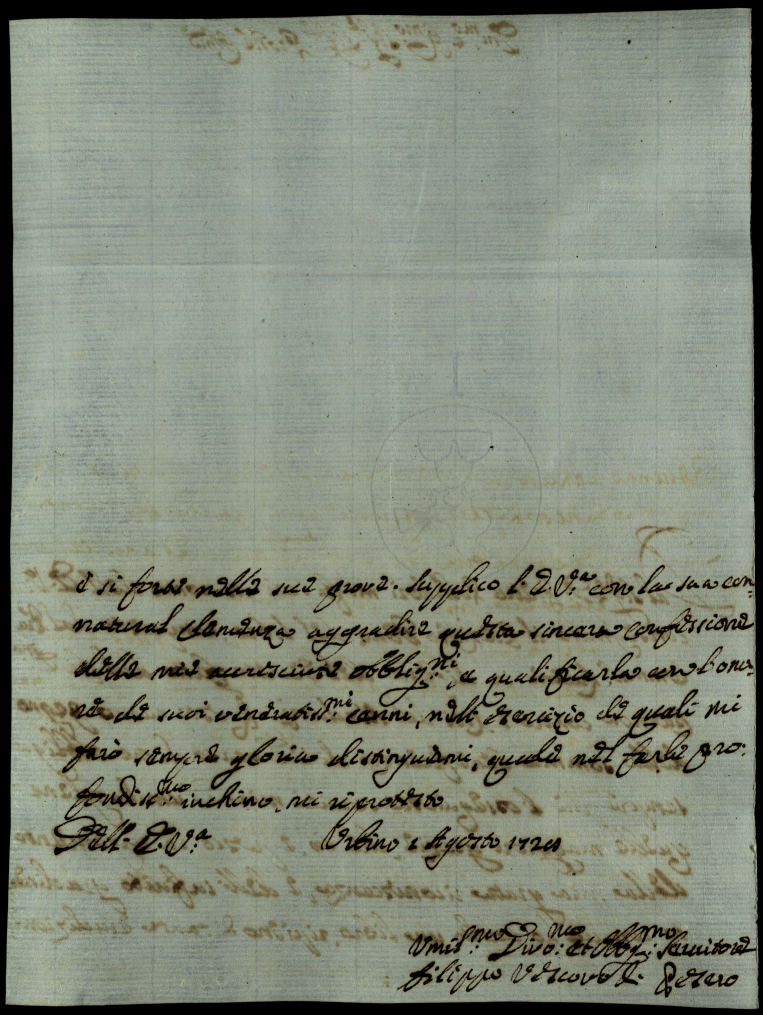 è si forte nelle sue prove. Supplico l'E. V.ª con la sua con=
natural clemenza aggradire questa sincera confessione
delle mie accresciute obblig.ni, e qualificarla con l'ono=
re de suoi veneratiss.mi cenni, nell'esercizio de quali mi
farò sempre gloria distinguermi, quale nel farle pro:
fondiss.mo inchino, mi riprotesto
Dell'E. V.ª Urbino 1 Agosto
Umil.mo Divo.mo et Obblig.mo Servitore
Filippo Vescovo di Pesaro